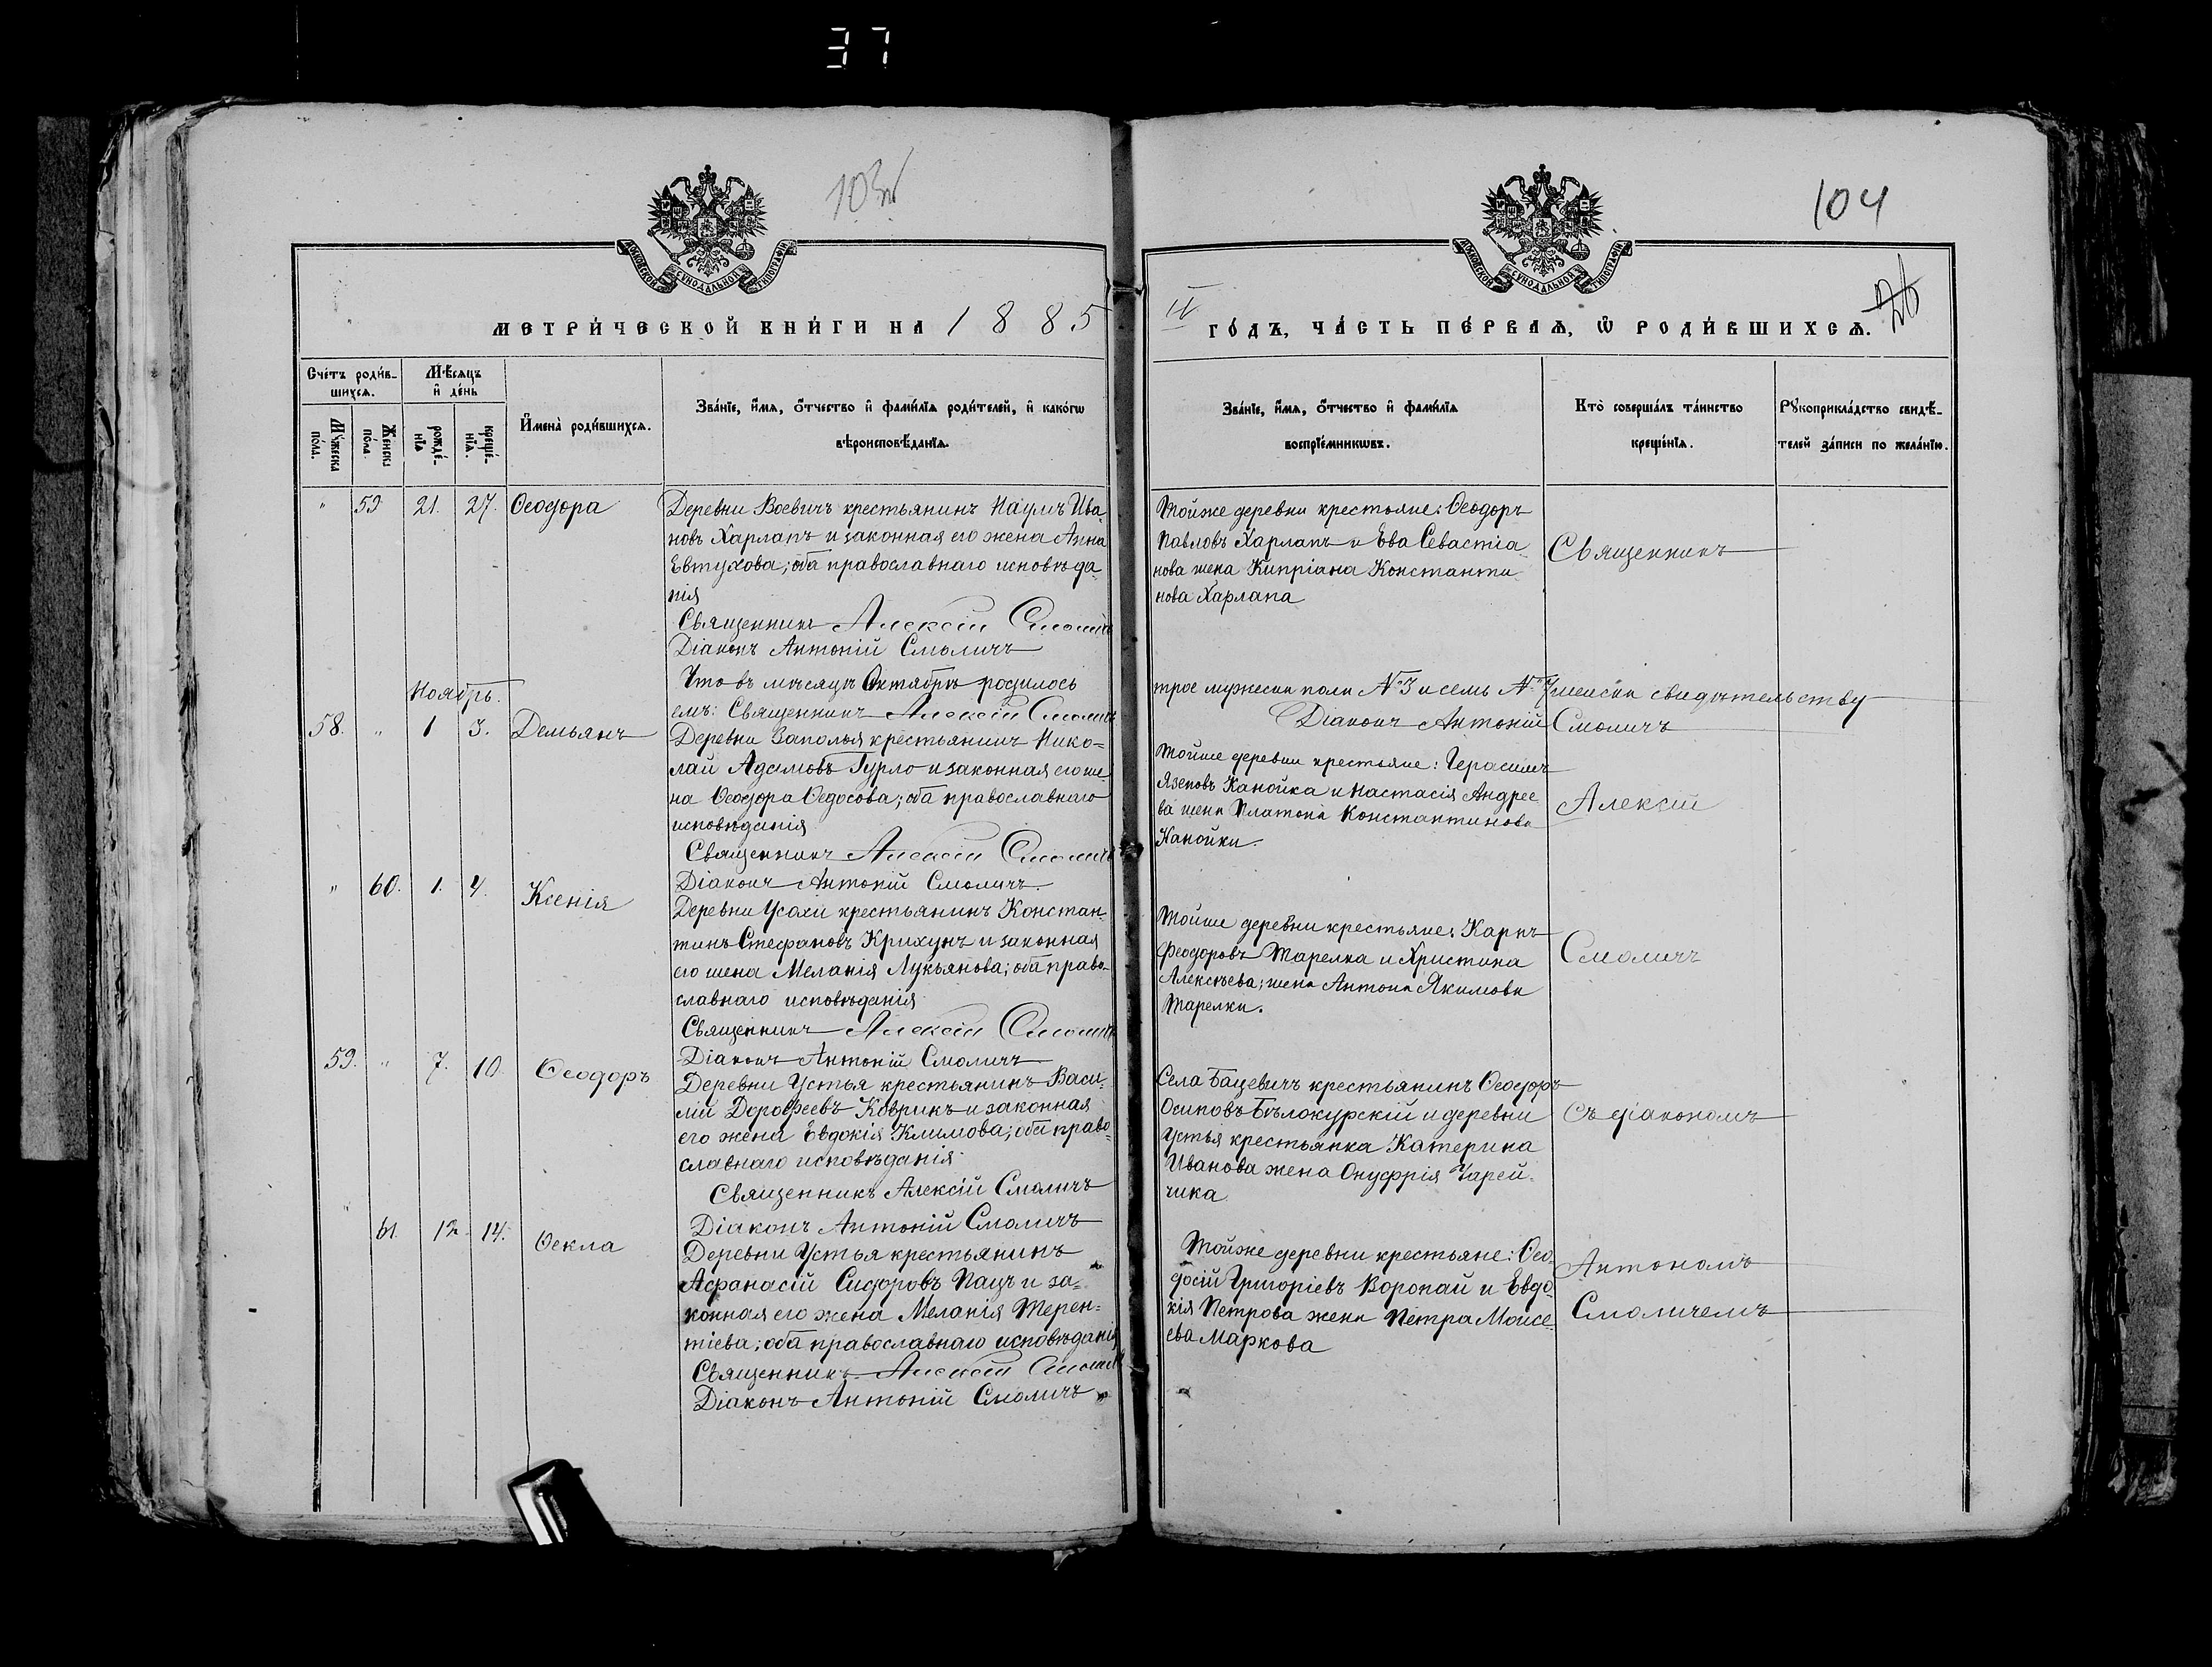 37
103
104
МОСКОВСКОЙ СѴНОДАЛЬНОЙ ТИПОГРАФІИ
МОСКОВСКОЙ СѴНОДАЛЬНОЙ ТИПОГРАФІИ
МЕТРИ́ЧЕСКОЙ КНИ́ГИ НА 1885
ГО́ДЪ, ЧА́СТЬ ПЕ́РВАѦ, Ѡ҆ РОДИ́ВШИХСѦ.
26
Сче́тъ роди́в-
шихсѧ.
Мꙋ́жеска по́ла.
Же́нска по́ла.
Мѣ́сѧцъ
и҆ де́нь
рожде́-
нїѧ
креще́-
нїѧ.
И҆мена̀ роди́вшихсѧ.
Зва́нїе, и҆́мѧ, ѻ҆́тчество и҆ фамѝлїѧ роди́телей, и҆ како́гѡ
вѣроисповѣ́данїѧ.
Зва́нїе, и҆́мѧ, ѻ҆́тчество и҆ фами́лїѧ
воспрїе́мникѡвъ.
Кто̀ соверша́лъ та́инство
креще́нїѧ.
Рꙋкоприкла́дство свидѣ́-
телей за́писи по жела́нїю.
" 59 21. 27. Ѳеодора
Деревни Воевичъ крестьянинъ Наумъ Ива-
новъ Харлапъ и законная его жена Анна
Евтухова; оба православнаго исповѣда-
нія
Священникъ Алексій Смоличъ
Діаконъ Антоній Смоличъ
Тойже деревни крестьяне: Ѳеодоръ
Павловъ Харлапъ и Ева Севастіа-
нова жена Кипріана Константи-
нова Харлапа
Священникъ
Что въ мѣсяцѣ Октябрѣ родилось трое мужеска пола №3 и семь №7 женска свидѣтельству
емъ: Священникъ Алексій Смоличъ Діаконъ Антоній Смоличъ
Ноябрь.
58. " 1 3. Демьянъ
Деревни Заполья крестьянинъ Нико-
лай Адамовъ Гурло и законная его же-
на Ѳеодора Ѳедосова; оба православнаго
исповѣданія
Священникъ Алексій Смоличъ
Діаконъ Антоній Смоличъ
Тойже деревни крестьяне: Герасимъ
Язеповъ Канойка и Настасія Андрее
ва жена Платона Константинова
Канойки.
Алексій
" 60. 1. 4. Ксенія
Деревни Усохи крестьянинъ Констан-
тинъ Стефановъ Крихунъ и законная
его жена Меланія Лукьянова; оба право-
славнаго исповѣданія
Священникъ Алексій Смоличъ
Діаконъ Антоній Смоличъ
Тойже деревни крестьяне: Карпъ
Феодоровъ Тарелка и Христина
Алексѣева; жена Антона Якимова
Тарелки.
Смоличъ
59. " 7. 10. Ѳеодоръ
Деревни Устья крестьянинъ Васи-
лій Дорофеевъ Ковринъ и законная
его жена Евдокія Климова; оба право-
славнаго исповѣданія
Священникъ Алексій Смоличъ
Діаконъ Антоній Смоличъ
Села Бацевичъ крестьянинъ Ѳеодоръ
Осиповъ Бѣлокурскій и деревни
Устья крестьянка Катерина
Иванова жена Онуфрія Чарей-
чика
Съ діакономъ
" 61. 12. 14. Ѳекла
Деревни Устья крестьянинъ
Афанасій Сидоровъ Пацъ и за-
конная его жена Меланія Терен-
тіева; оба православнаго исповѣданія
Священникъ Алексій Смоличъ
Діаконъ Антоній Смоличъ
Тойже деревни крестьяне: Ѳео-
досій Григоріевъ Воропай и Евдо-
кія Петрова жена Петра Моисе-
ева Маркова
Антономъ
Смоличемъ